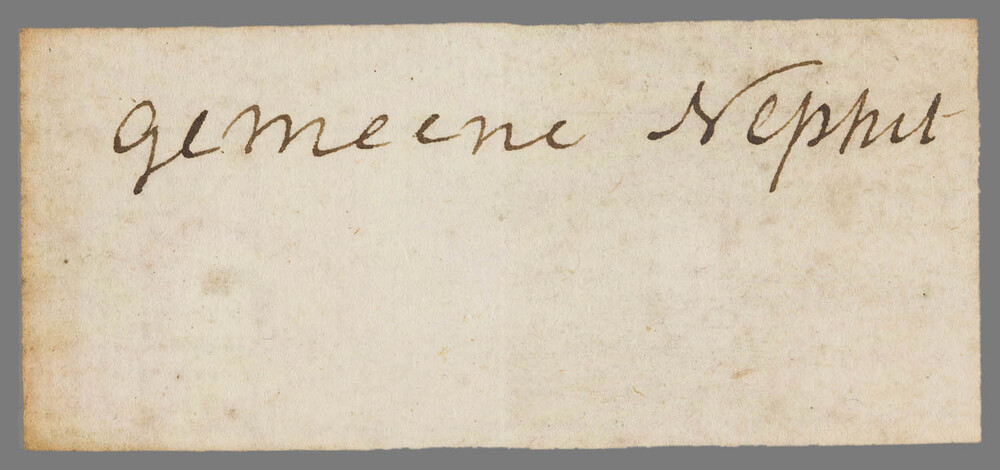 gemeene Nephrit